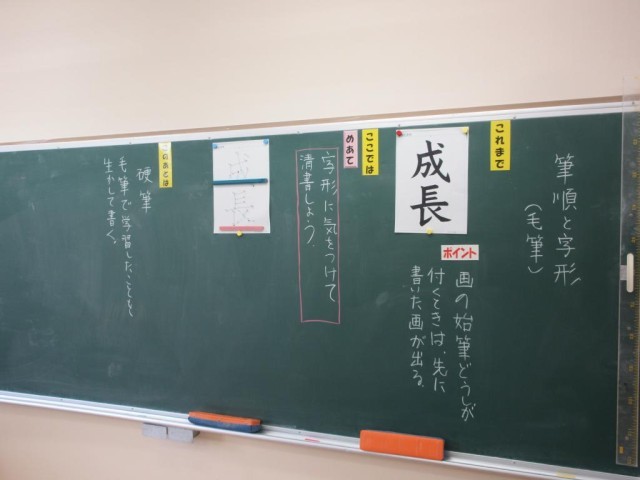 筆順と字形
（毛筆）
これまで
成長
ポイント
画の始筆どうしが
付くときは、先に
書いた画が出る。
ここでは
めあて
字形に気をつけて
清書しよう。
成長
このあとは
硬筆
毛筆で学習したことを
生かして書く。